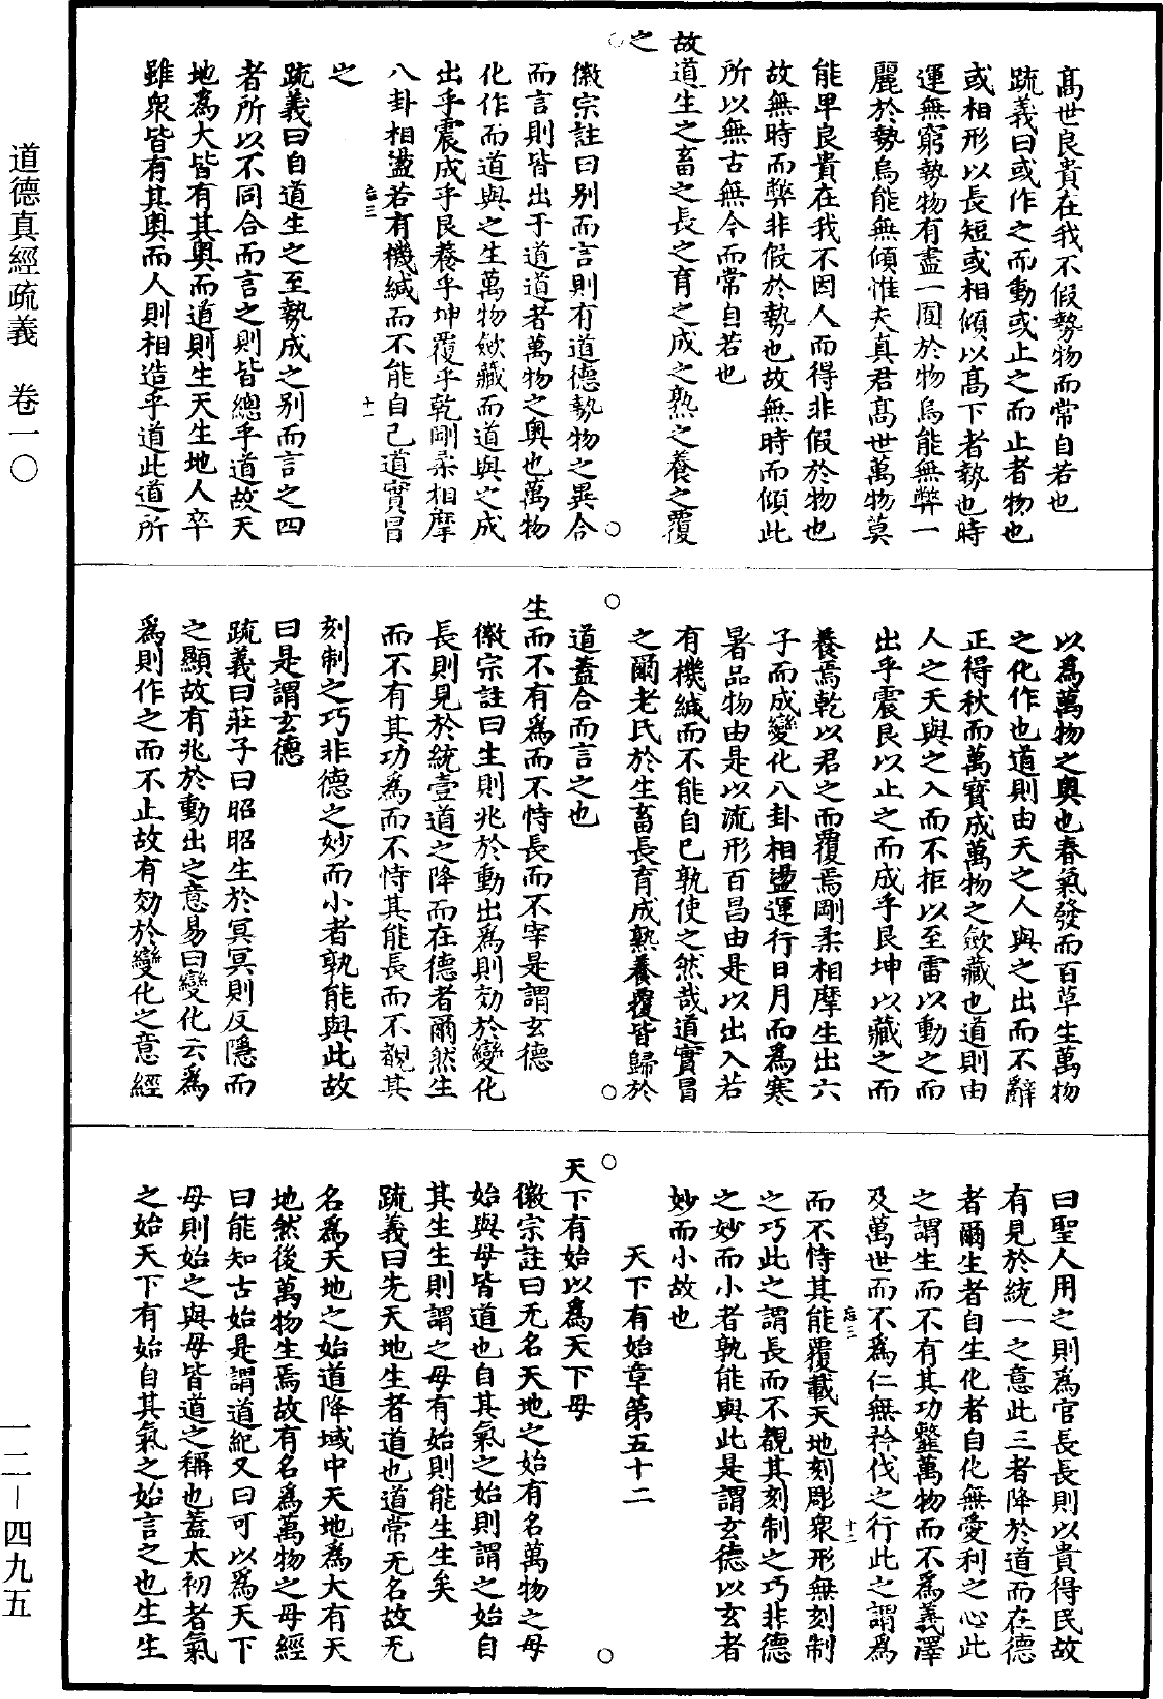 高世良貴在我不假勢物而常自若也
疏義曰或作之而動或止之而止者物也
或相形以長短或相傾以高下者勢也時
運無窮勢物有盡一囿於物烏能無弊一
麗於勢烏能無傾惟夫真君高世萬物莫
能卑良貴在我不因人而得非假於物也
故無時而弊非假於勢也故無時而傾此
所以無古無今而常自若也
故道生之畜之長之育之成之熟之養之覆
之
徽宗註曰別而言則有道德勢物之異合
而言則皆出于道道者萬物之奧也萬物
化作而道與之生萬物歛藏而道與之成
出乎震成乎艮養乎坤覆乎乾剛柔相摩
八卦相盪若有機緘而不能自已道實冒
忘三
十一
之
疏義曰自道生之至勢成之別而言之四
者所以不同合而言之則皆總乎道故天
地為大皆有其奧而道則生天生地人卒
雖衆皆有其奧而人則相造乎道此道所
以為萬物之奧也春氣發而百草生萬物
之化作也道則由天之人與之出而不辭
正得秋而萬寶成萬物之歛藏也道則由
人之天與之入而不拒以至雷以動之而
出乎震艮以止之而成乎艮坤以藏之而
養焉乾以君之而覆焉剛柔相摩生出六
子而成變化八卦相盪運行日月而為寒
暑品物由是以流形百昌由是以出入若
有機緘而不能自已孰使之然哉道實冒
之爾老氏於生畜長育成熟養覆皆歸於
道蓋合而言之也
生而不有為而不恃長而不宰是謂玄德
徽宗註曰生則兆於動出為則効於變化
長則見於統壹道之降而在德者爾然生
而不有其功為而不恃其能長而不覩其
刻制之巧非德之妙而小者孰能與此故
曰是謂玄德
疏義曰莊子曰昭昭生於冥冥則反隱而
之顯故有兆於動出之意易曰變化云為
為則作之而不止故有効於變化之意經
曰聖人用之則為官長長則以貴得民故
有見於統一之意此三者降於道而在德
者爾生者自生化者自化無愛利之心此
之謂生而不有其功䪠萬物而不為義澤
及萬世而不為仁無矜伐之行此之謂為
忘三
十二
而不恃其能覆載天地刻彫衆形無刻制
之巧此之謂長而不覩其刻制之巧非德
之妙而小者孰能與此是謂玄德以玄者
妙而小故也
天下有始章第五十二
天下有始以為天下母
徽宗註曰无名天地之始有名萬物之母
始與母皆道也自其氣之始則謂之始自
其生生則謂之母有始則能生生矣
疏義曰先天地生者道也道常无名故无
名為天地之始道降域中天地為大有天
地然後萬物生焉故有名為萬物之母經
曰能知古始是謂道紀又曰可以為天下
母則始之與母皆道之稱也蓋太初者氣
之始天下有始自其氣之始言之也生生
道德真經疏義　卷一〇
一二－四九五